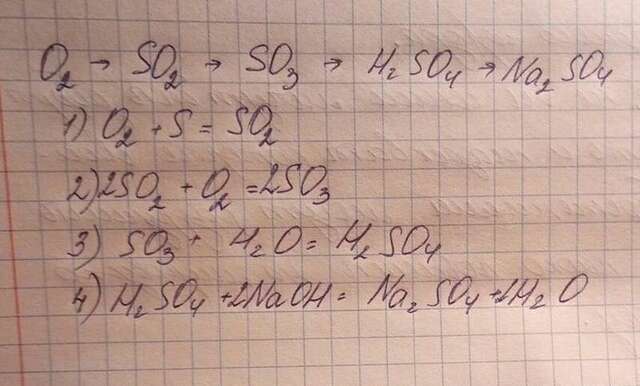 O₂ → SO₂ → SO₃ → H₂SO₄ → Na₂SO₄
1) O₂ + S = SO₂
2) 2SO₂ + O₂ = 2SO₃
3) SO₃ + H₂O = H₂SO₄
4) H₂SO₄ + 2NaOH = Na₂SO₄ + 2H₂O